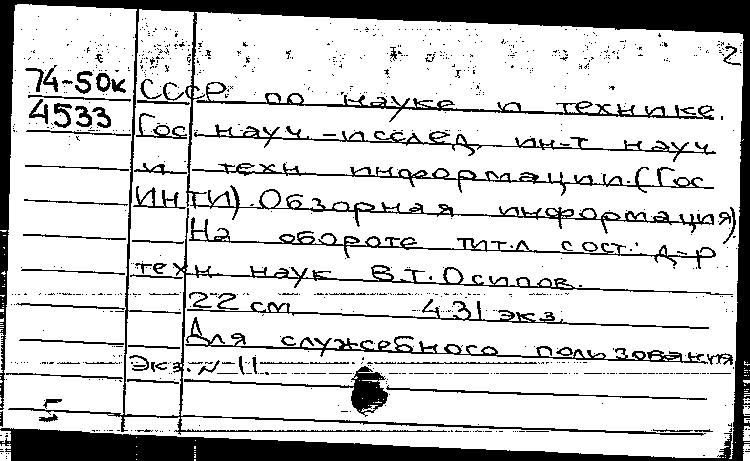 2
74-50к СССР по науке и технике.
4533 Гос. науч.-исслед. ин-т науч
и техн информации. (Гос
ИНТИ). Обзорная информация)
На обороте тит.л. сост.: д-р
техн. наук В.Т. Осипов.
22 см. 431 экз.
Для служебного пользования
Экз. N 11.
5